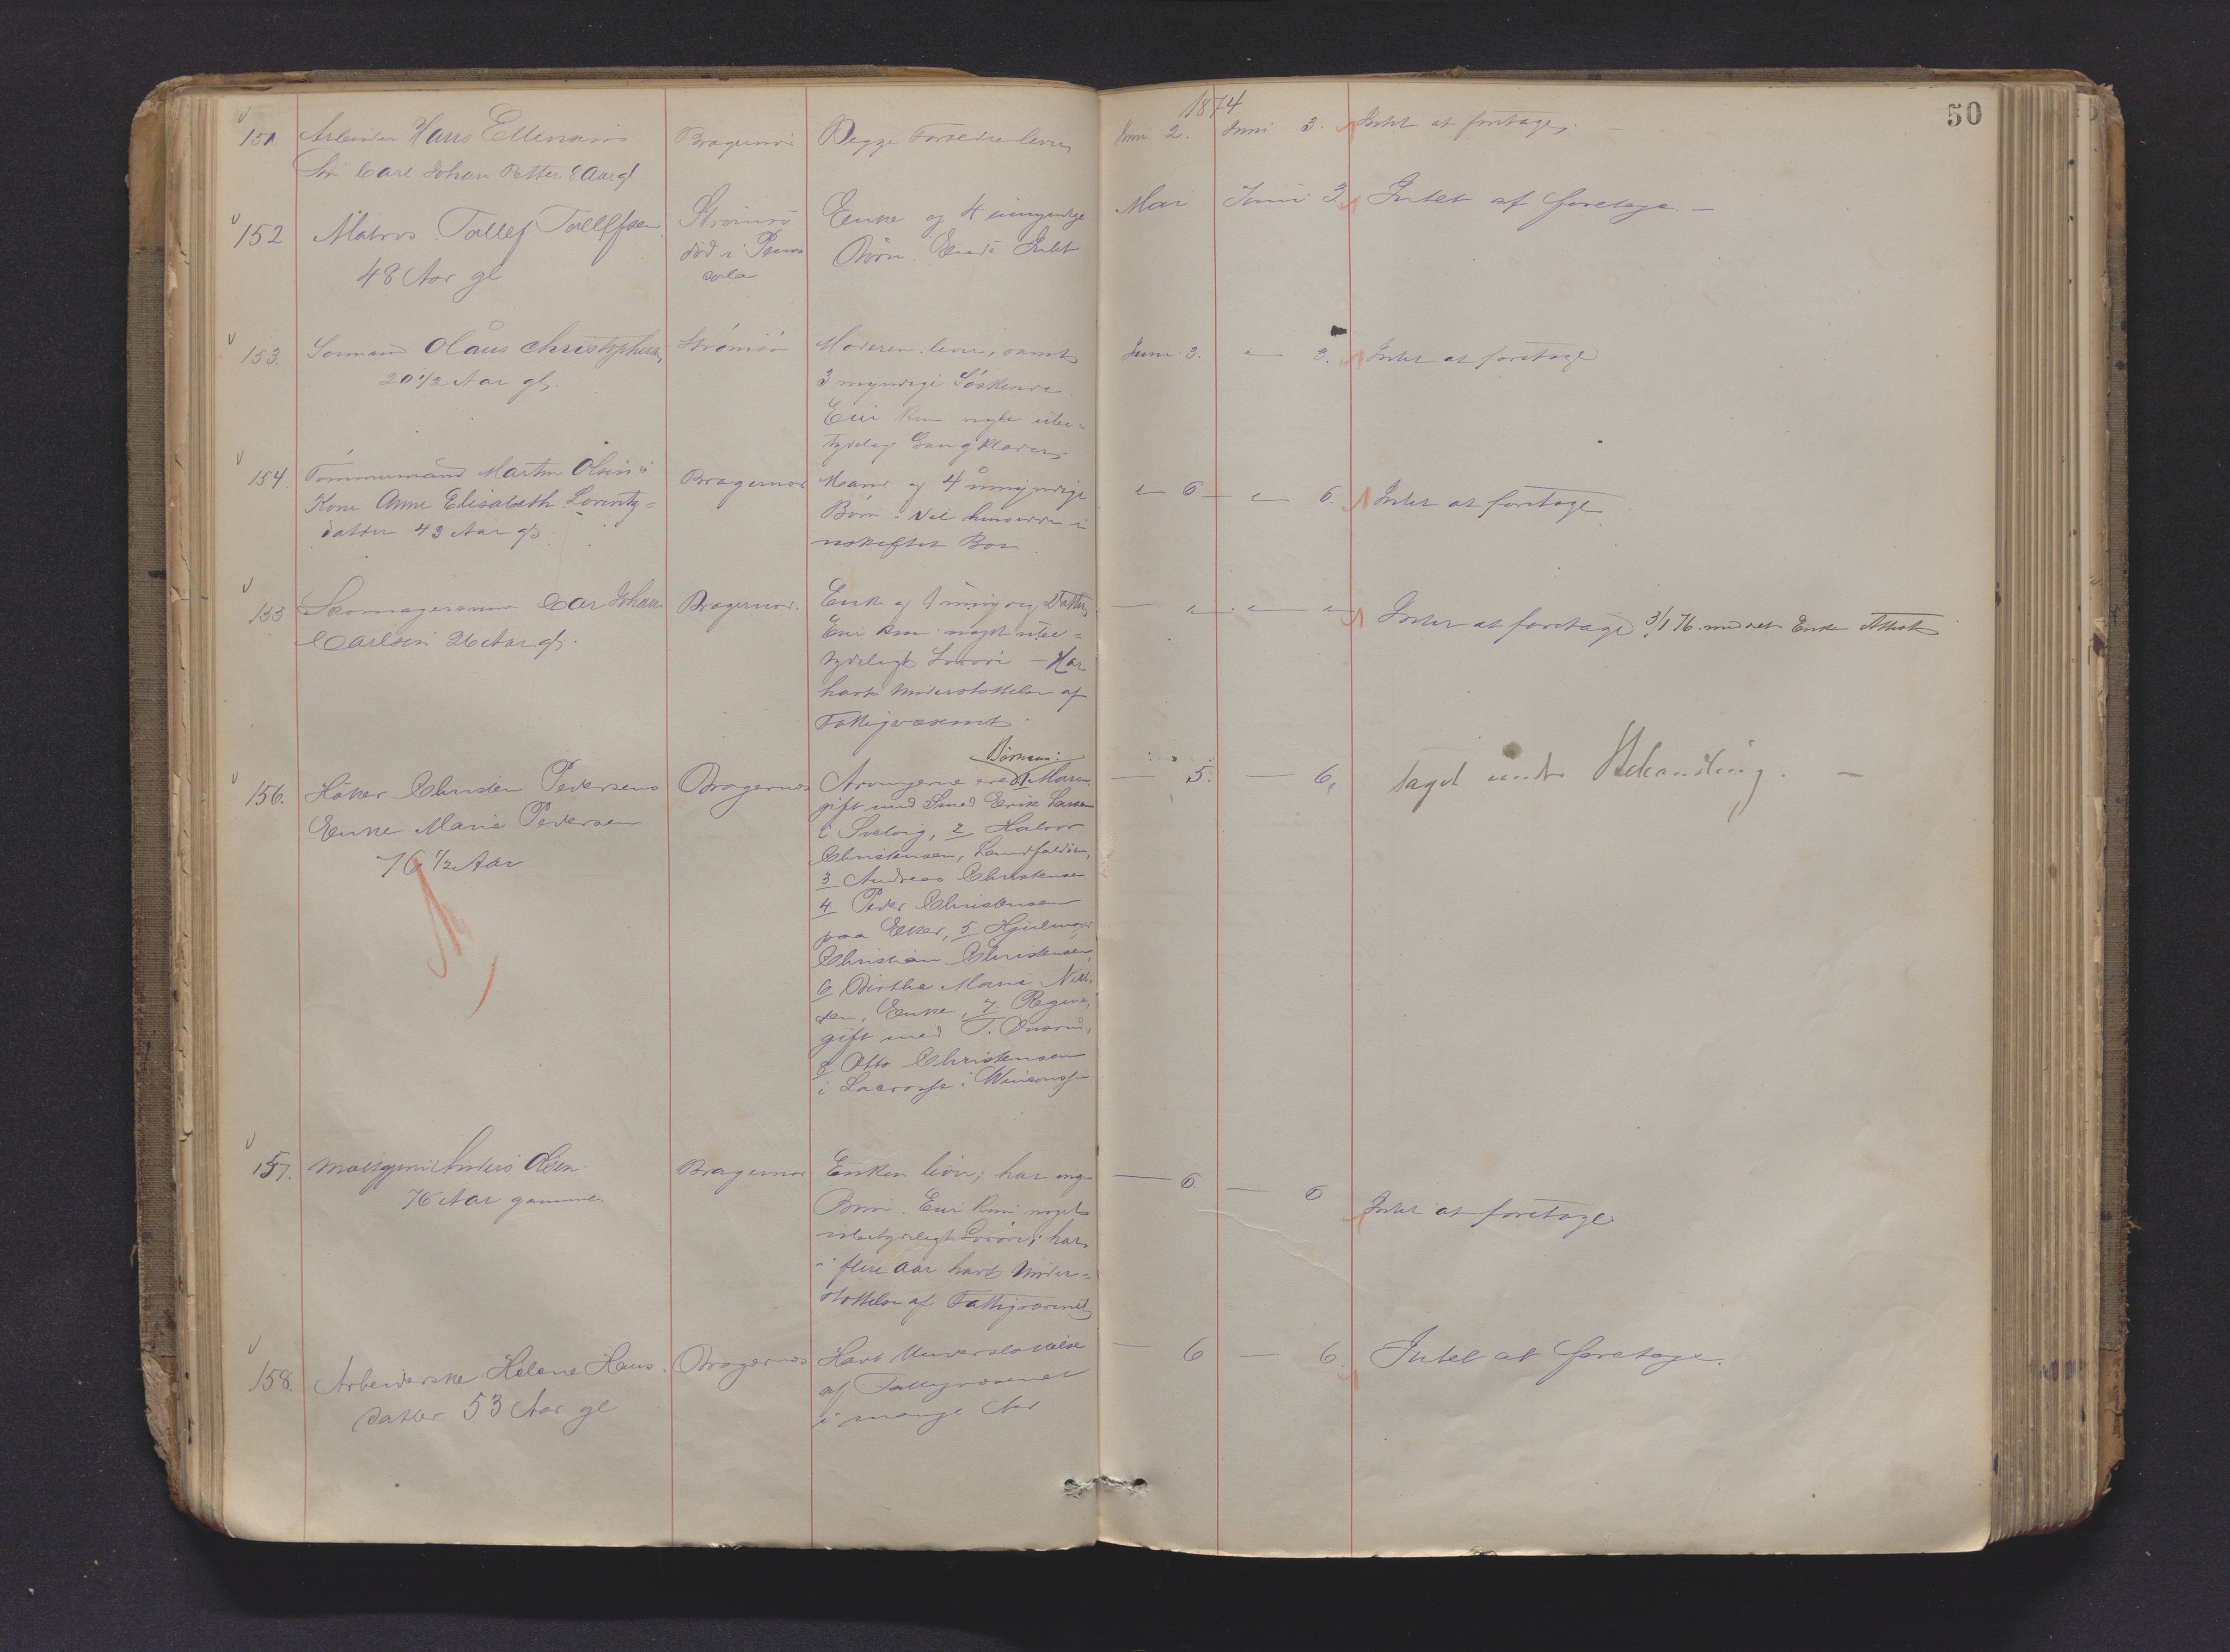 1874
50
151 Arbeider Hans Ellensens Bragernæs Begge Forældre lever Juni 2. Juni 3. Intet at foretage.
Søn Carl Johan Petter 8 Aar gl
152 Matros Tollef Tollefsen Strømsø Enke og 4 umyndige Mai Juni 3 Intet at foretage. —
48 Aar gl død i Pensa Børn. Eiede Intet
cola
153. Sømand Olaus Christophersen Strømsø Moderen lever, samt Juni 3. 3. Intet at foretage
20 1/2 Aar gl. 3 myndige Søskende
Eier kun nogle ube=
tydelige Gangklæder
154. Tømmermand Martin Olsens Bragernæs Mand og 4 umyndige 6 6. Intet at foretage
Kone Anne Elisabeth Lorentz= Børn. Vil hensidde i
datter 43 Aar gl. uskiftet Bo
155 Skomagersvend Carl Johan Bragernæs. Enke og 1 umyndig Datter Intet at foretage 3/1 76. meddelt Enken Attest
Carlsen 26 Aar gl. Eier kun noget ube=
tydeligt Løsøre — Har
havt Understøttelse af
Fattigvæsenet.
Børnene:
156. Høker Christen Pedersens Bragernæs Arvingerne ere 1 Maren — 5. — 6. taget under Behandling. —
Enke Marie Pedersen gift med Smed Erik Larsen
76 1/2 Aar i Svelvig, 2 Halvor
Christensen, Landfaldøen,
3 Andreas Christensen
4 Peder Christensen
paa Eker, 5 Hjulmager
Christian Christensen,
6 Birthe Marie Niel=
sen, Enke, 7 Regine,
gift med T.
8 Otto Christensen
i Lacrosse i Wisconsin
157. Anders Olsen. Bragernæs Enken lever; har ingen — 6 — 6 Intet at foretage
76 Aar gammel Børn. Eier kun noget
ubetydeligt Løsøre; har
i flere Aar havt Under=
støttelse af Fattigvæsenet
158. Arbeiderske Helene Hans= Bragernæs Havt Understøttelse — 6 — 6 Intet at foretage.
datter 53 Aar gl af Fattigvæsenet
i mange Aar